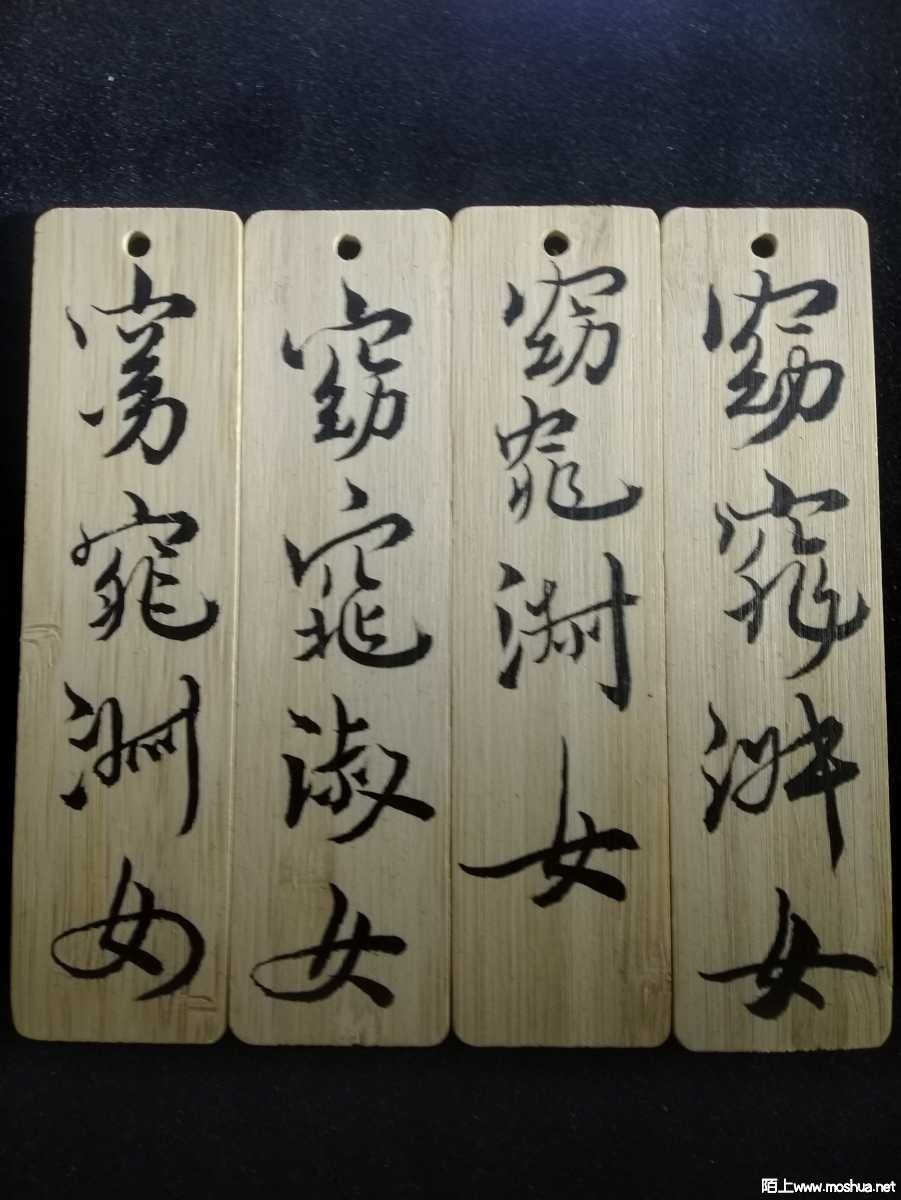 窈窕淑女
窈窕淑女
窈窕淑女
窈窕淑女
陌上www.moshua.net